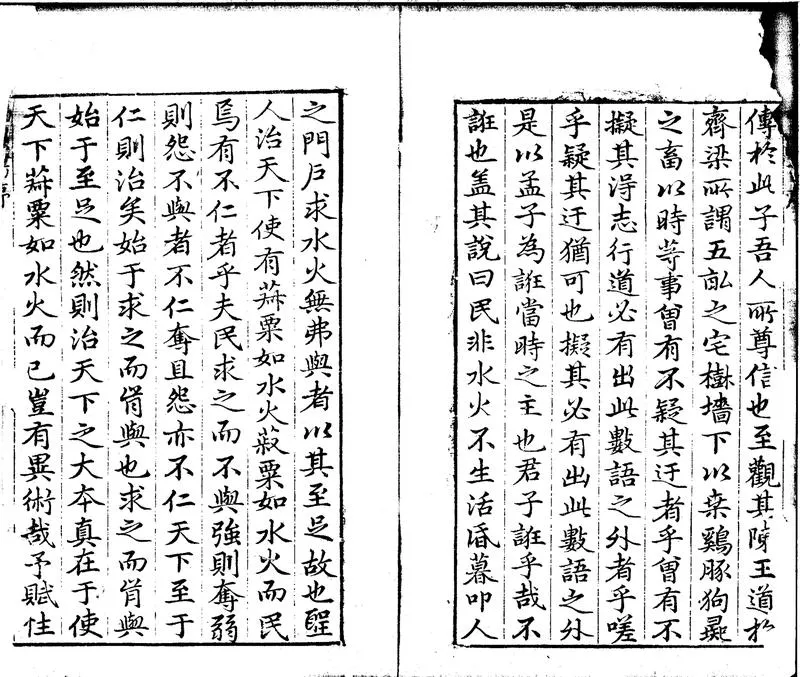 傳於此子吾人所尊信也至觀其陳王道於
齊梁所謂五畝之宅樹墻下以桒鷄豚狗彘
之畜以時等事曾有不疑其迂者乎曾有不
擬其淂志行道必有出此數語之外者乎嗟
乎疑其迂猶可也擬其必有出此數語之外
是以孟子為誑當時之主也君子誑乎哉不
誑也盖其說曰民非水火不生活昏暮叩人
之門户求水火無弗與者以其至足故也聖
人治天下使有菽粟如水火菽粟如水火而民
焉有不仁者乎夫民求之而不與強則奪弱
則怨不與者不仁奪且怨亦不仁天下至于
仁則治矣始于求之而肯與也求之而肯與
始于至足也然則治天下之大本真在于使
天下菽粟如水火而已豈有異術哉予賦性
序